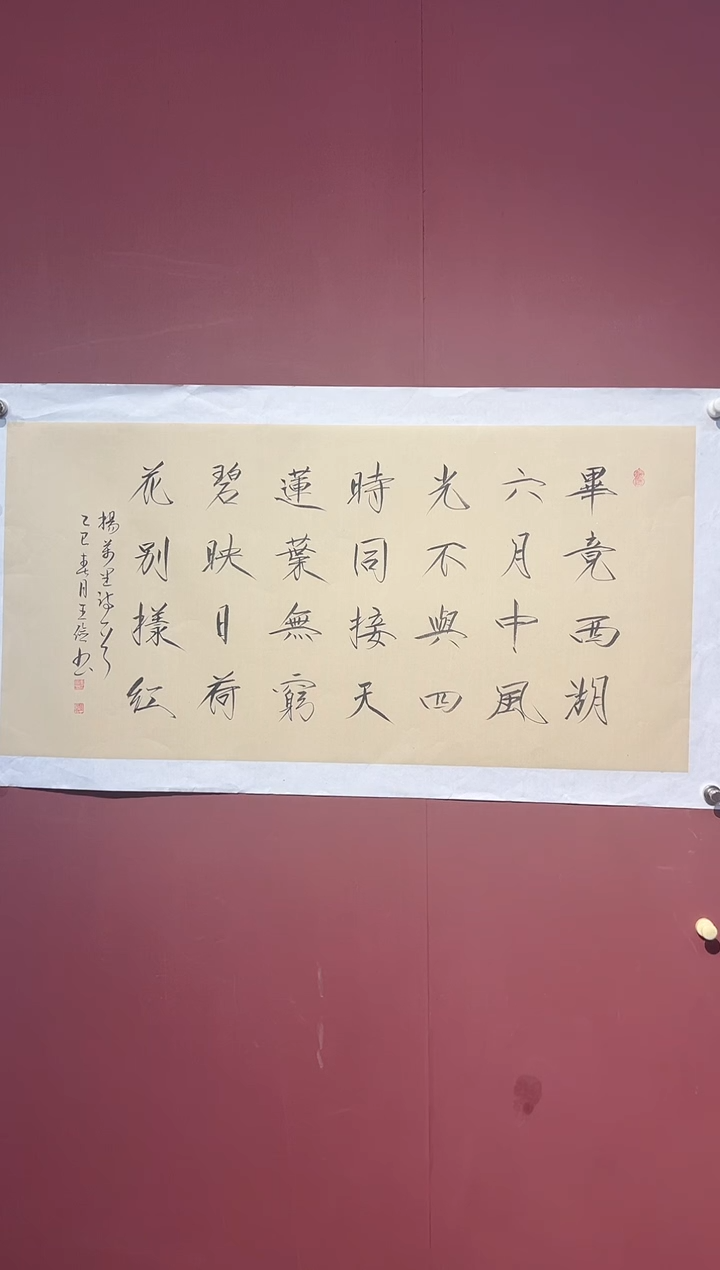 畢竟西湖
六月中風
光不與四
時同接天
蓮葉無窮
碧映日荷
花别樣紅
楊萬里詩一首
乙巳春月王书